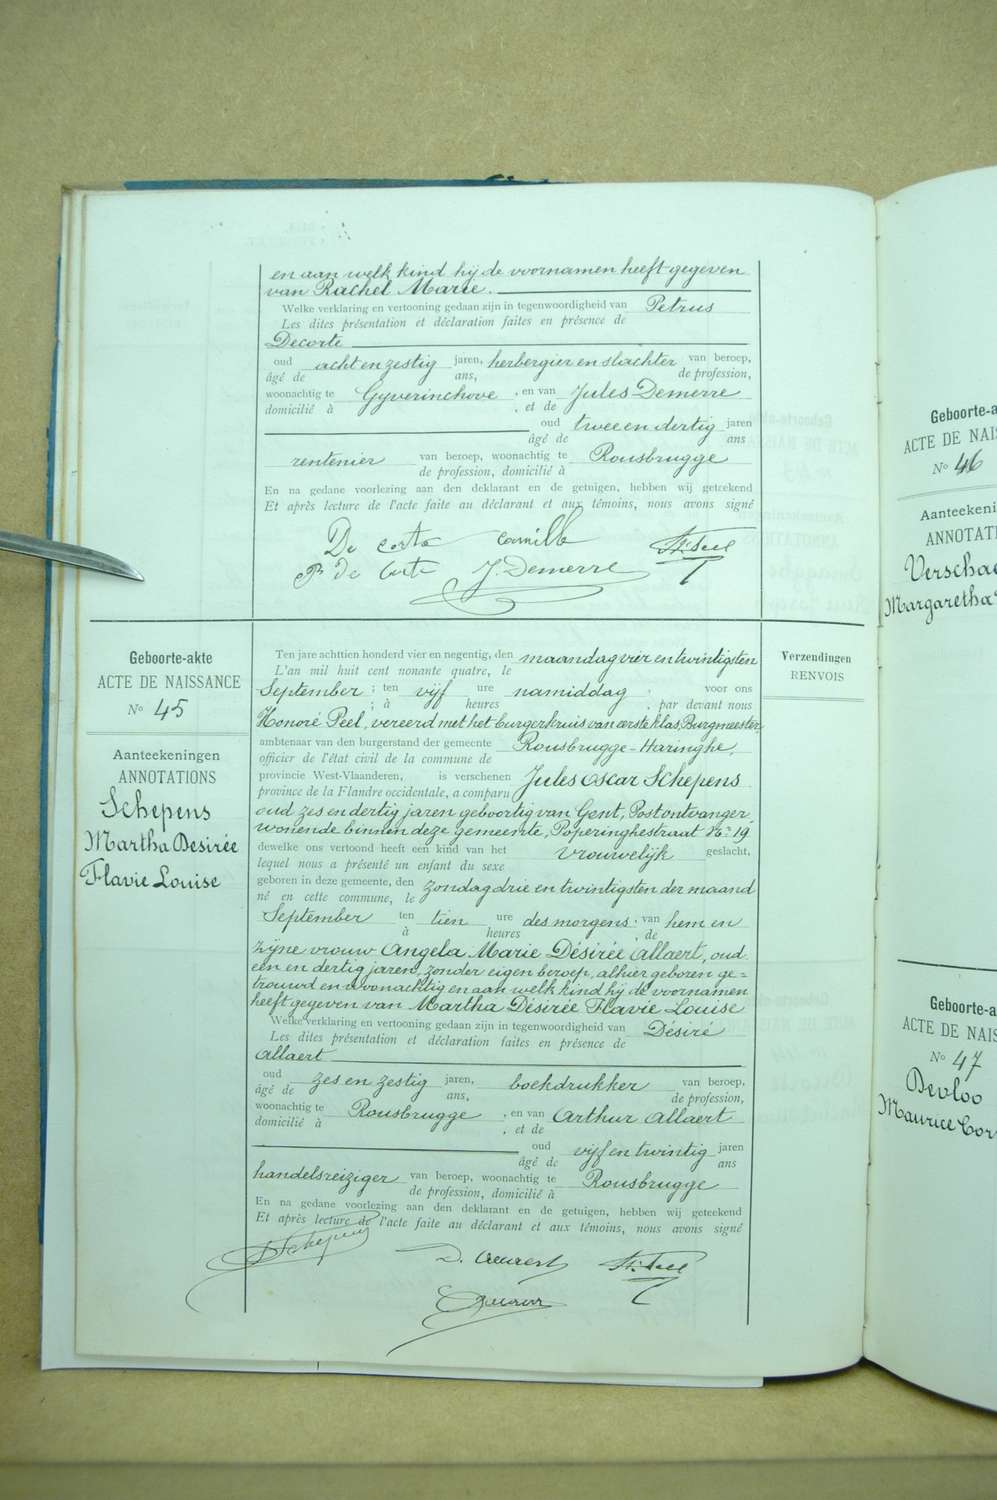 en aan welk kind hij de voornamen heeft gegeven
van Rachel Marie.
Welke verklaring en vertooning gedaan zijn in tegenwoordigheid van Petrus
Les dites présentation et déclaration faites en présence de
Decorte
oud acht en zestig jaren, herbergier en slachter van beroep,
âgé de ans, de profession,
woonachtig te Gyverinchove, en van Jules Demerre
domicilié à , et de
oud twee en dertig jaren
âgé de ans
rentenier van beroep, woonachtig te Rousbrugge
de profession, domicilié à
En na gedane voorlezing aan den deklarant en de getuigen, hebben wij geteekend
Et après lecture de l'acte faite au déclarant et aux témoins, nous avons signé
De corte Camille
P. De Corte J. Demerre
Geboorte-akte
ACTE DE NAISSANCE
No 45
Aanteekeningen
ANNOTATIONS
Schepens
Martha Desirée
Flavie Louise
Ten jare achttien honderd vier en negentig, den maandag vier en twintigsten
L'an mil huit cent nonante quatre, le
September ; ten vijf ure namiddag . voor ons
; à heures , par devant nous
Honoré Peel, vereerd met het burgerkruis van eerste klas, Burgmeester,
ambtenaar van den burgerstand der gemeente Rousbrugge-Haringhe,
officier de l'état civil de la commune de
provincie West-Vlaanderen, is verschenen Jules Oscar Schepens
province de la Flandre occidentale, a comparu
oud zes en dertig jaren geboortig van Gent, Postontvanger,
wonende binnen deze gemeente, Poperinghestraat No 19
dewelke ons vertoond heeft een kind van het vrouwelijk geslacht,
lequel nous a présenté un enfant du sexe
geboren in deze gemeente, den zondag drie en twintigsten der maand
né en cette commune, le
September ten tien ure des morgens, van hem en
à heures , de
zijne vrouw Angela Marie Désirée Allaert, oud
een en dertig jaren, zonder eigen beroep, alhier geboren ge=
trouwd en woonachtig en aan welk kind hij de voornamen
heeft gegeven van Martha Désirée Flavie Louise
Welke verklaring en vertooning gedaan zijn in tegenwoordigheid van Désiré
Les dites présentation et déclaration faites en présence de
Allaert
oud zes en zestig jaren, boekdrukker van beroep,
âgé de ans, de profession,
woonachtig te Rousbrugge , en van Arthur Allaert
domicilié à , et de
oud vijf en twintig jaren
âgé de ans
handelsreiziger van beroep, woonachtig te Rousbrugge
de profession, domicilié à
En na gedane voorlezing aan den deklarant en de getuigen, hebben wij geteekend
Et après lecture de l'acte faite au déclarant et aux témoins, nous avons signé
Schepens
Verzendingen
RENVOIS
Geboorte-a
ACTE DE NAIS
No 46
Aanteekeni
ANNOTATI
Verschae
Margaretha
Geboorte-a
ACTE DE NAIS
No 47
Devloo
Maurice Cor